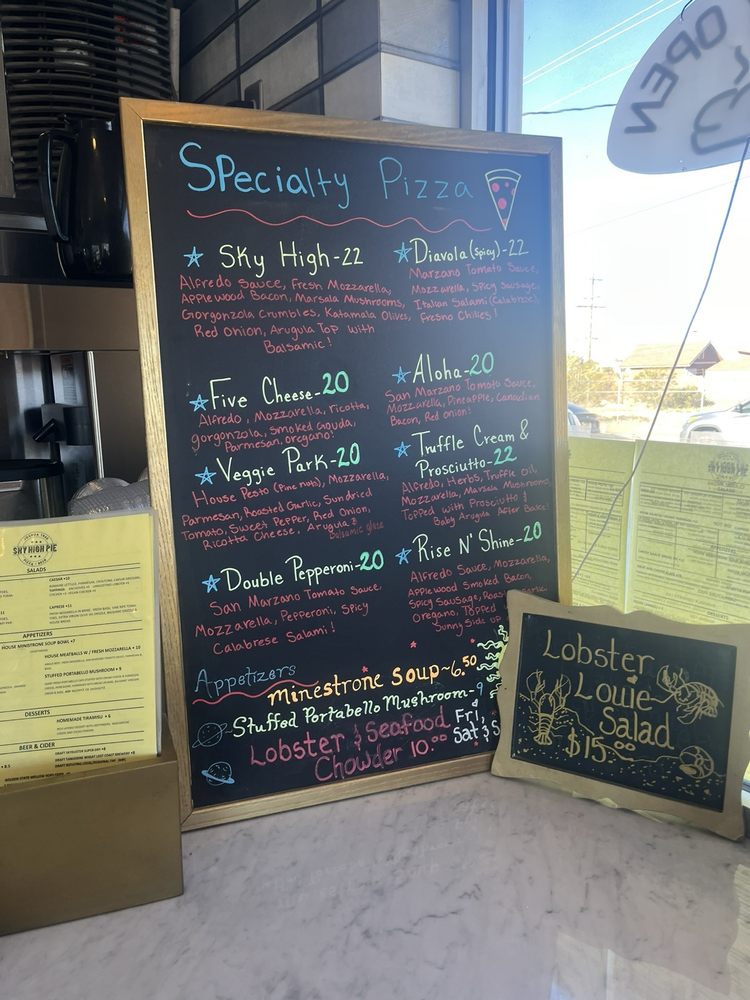 Specialty Pizza
Sky High-22
Alfredo Sauce, Fresh Mozzarella,
Applewood Bacon, Marsala Mushrooms,
Gorgonzola Crumbles, Katamala Olives,
Red Onion, Arugula Top with
Balsamic!
Five Cheese-20
Alfredo, Mozzarella, ricotta,
gorgonzola, Smoked Gouda,
Parmesan, oregano!
Veggie Park-20
House Pesto (Pine nuts), Mozzarella,
Parmesan, Roasted Garlic, Sundried
Tomato, Sweet Pepper, Red Onion,
Ricotta Cheese, Arugula &
Balsamic glaze
Double Pepperoni-20
San Marzano Tomato Sauce,
Mozzarella, Pepperoni, Spicy
Calabrese Salami!
Diavola (spicy)-22
Marzano Tomato Sauce,
Mozzarella, Spicy Sausage,
Italian Salami (Calabrese),
Fresno Chilies!
Aloha-20
San Marzano Tomato Sauce,
Mozzarella, Pineapple, Canadian
Bacon, Red onion!
Truffle Cream &
Prosciutto-22
Alfredo, Herbs, Truffle Oil,
Mozzarella, Marsala Mushrooms,
Topped with Prosciutto &
Baby Arugula After Bake!
Rise N' Shine-20
Alfredo Sauce, Mozzarella,
Applewood Smoked Bacon,
Spicy Sausage, Roasted Garlic,
Oregano, Topped
Sunny Side up
Appetizers
minestrone soup~6.50
Stuffed Portabello Mushroom-9
Lobster & Seafood
Chowder 10.00
Fri,
Sat & S
Lobster
Louie
Salad
$15.00
OPEN
SKY HIGH PIE
SALADS
CAESAR +10
CAPRESE +11
APPETIZERS
HOUSE MINISTRONE SOUP BOWL +7
HOUSE MEATBALLS W / FRESH MOZZARELLA + 10
STUFFED PORTABELLO MUSHROOM + 9
DESSERTS
HOMEMADE TIRAMISU + 6
BEER & CIDER